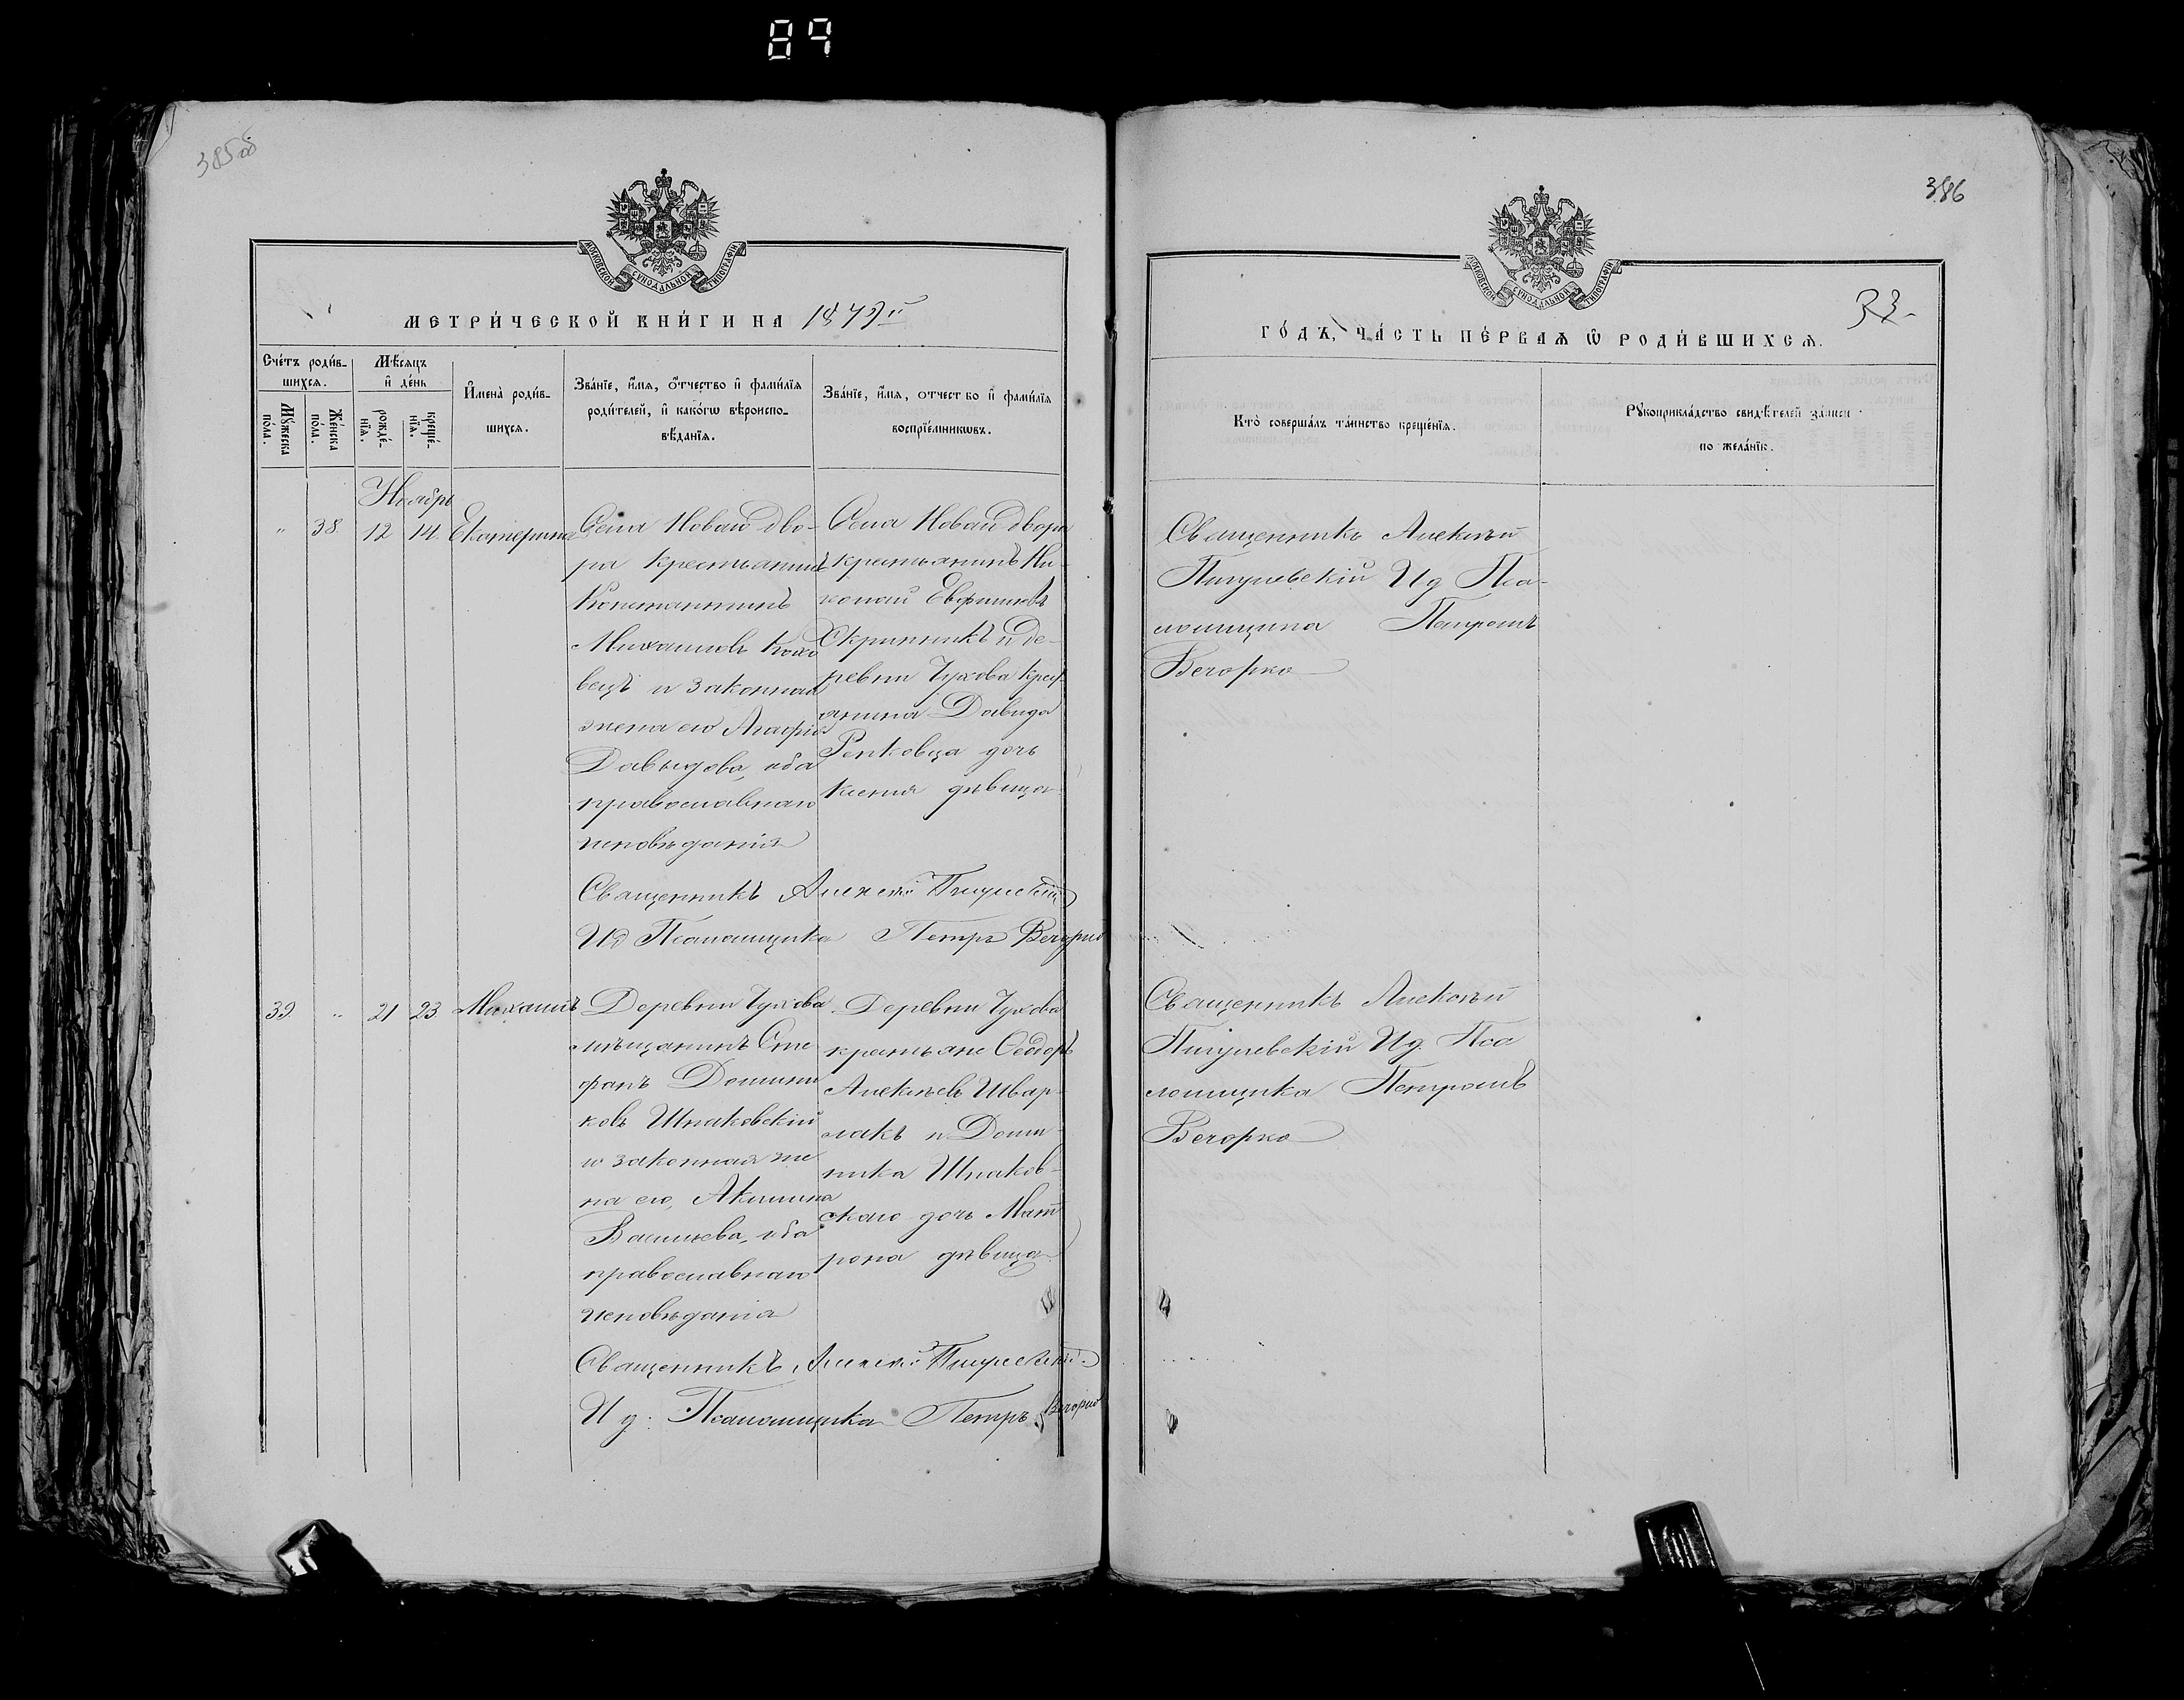 89
385об
386
МОСКОВСКОЙ СѴНОДАЛЬНОЙ ТИПОГРАФІИ
МЕТРИ́ЧЕСКОЙ КНИ́ГИ НА
Сче́тъ роди́в-
шихся.
Мꙋ́жеска
по́ла.
Же́нска
по́ла.
Мѣ́сяцъ
и҆ де́нь
рожде́-
нїя.
креще́-
нїя.
И҆мена̀ роди́в-
шихся.
Зва́нїе, и҆́мя, ѻ҆́тчество и҆ фами́лїя
роди́телей, и҆ како́гѡ вѣроиспо-
вѣ́данїя.
Зва́нїе, и҆́мя, отчество и҆ фами́лїя
воспрїе́мникѡвъ.
Ноябрь
" 38. 12 14. Екатерина
Села Новаго дво-
ра крестьянинъ
Константинъ
Михаиловъ
вецъ и законная
жена его Агафія
Давыдова, оба
православнаго
исповѣданія
Села Новаго двора
крестьянинъ Ни-
колай Евфимовъ
Скрипникъ и де-
ревни Чухова крест
янина Давида
Репковца дочь
Ксенія дѣвица
Священникъ Алексѣй Пигулевскій
Ид Псаломщика Петръ Вечорко
39. " 21 23. Михаилъ
Деревни Чухова
мѣщанинъ Сте
фанъ Домини
ковъ Шпаковскій
и законная же
на его, Акилина
Васильева, оба
православнаго
исповѣданія
Деревни Чухова
крестьяне Ѳеодоръ
Алексѣевъ Швар-
лакъ и Доми
ника Шпаков-
скаго дочь Мат
рона дѣвица
Священникъ Алексѣй Пигулевскій
И д. Псаломщика Петръ Вечорко
МОСКОВСКОЙ СѴНОДАЛЬНОЙ ТИПОГРАФІИ
33.
ГО́ДЪ, ЧА́СТЬ ПЕ́РВАѦ Ѡ҆ РОДИ́ВШИХСѦ.
Кто̀ соверша́лъ та́инство креще́нїя.
Рꙋкоприкла́дство свидѣ́телей за́писи
по жела́нїю.
Священникъ Алексѣй
Пигулевскій Ид Пса-
ломщика Петромъ
Вечорко
Священникъ Алексѣй
Пигулевскій Ид. Пса
ломщика Петромъ
Вечорко